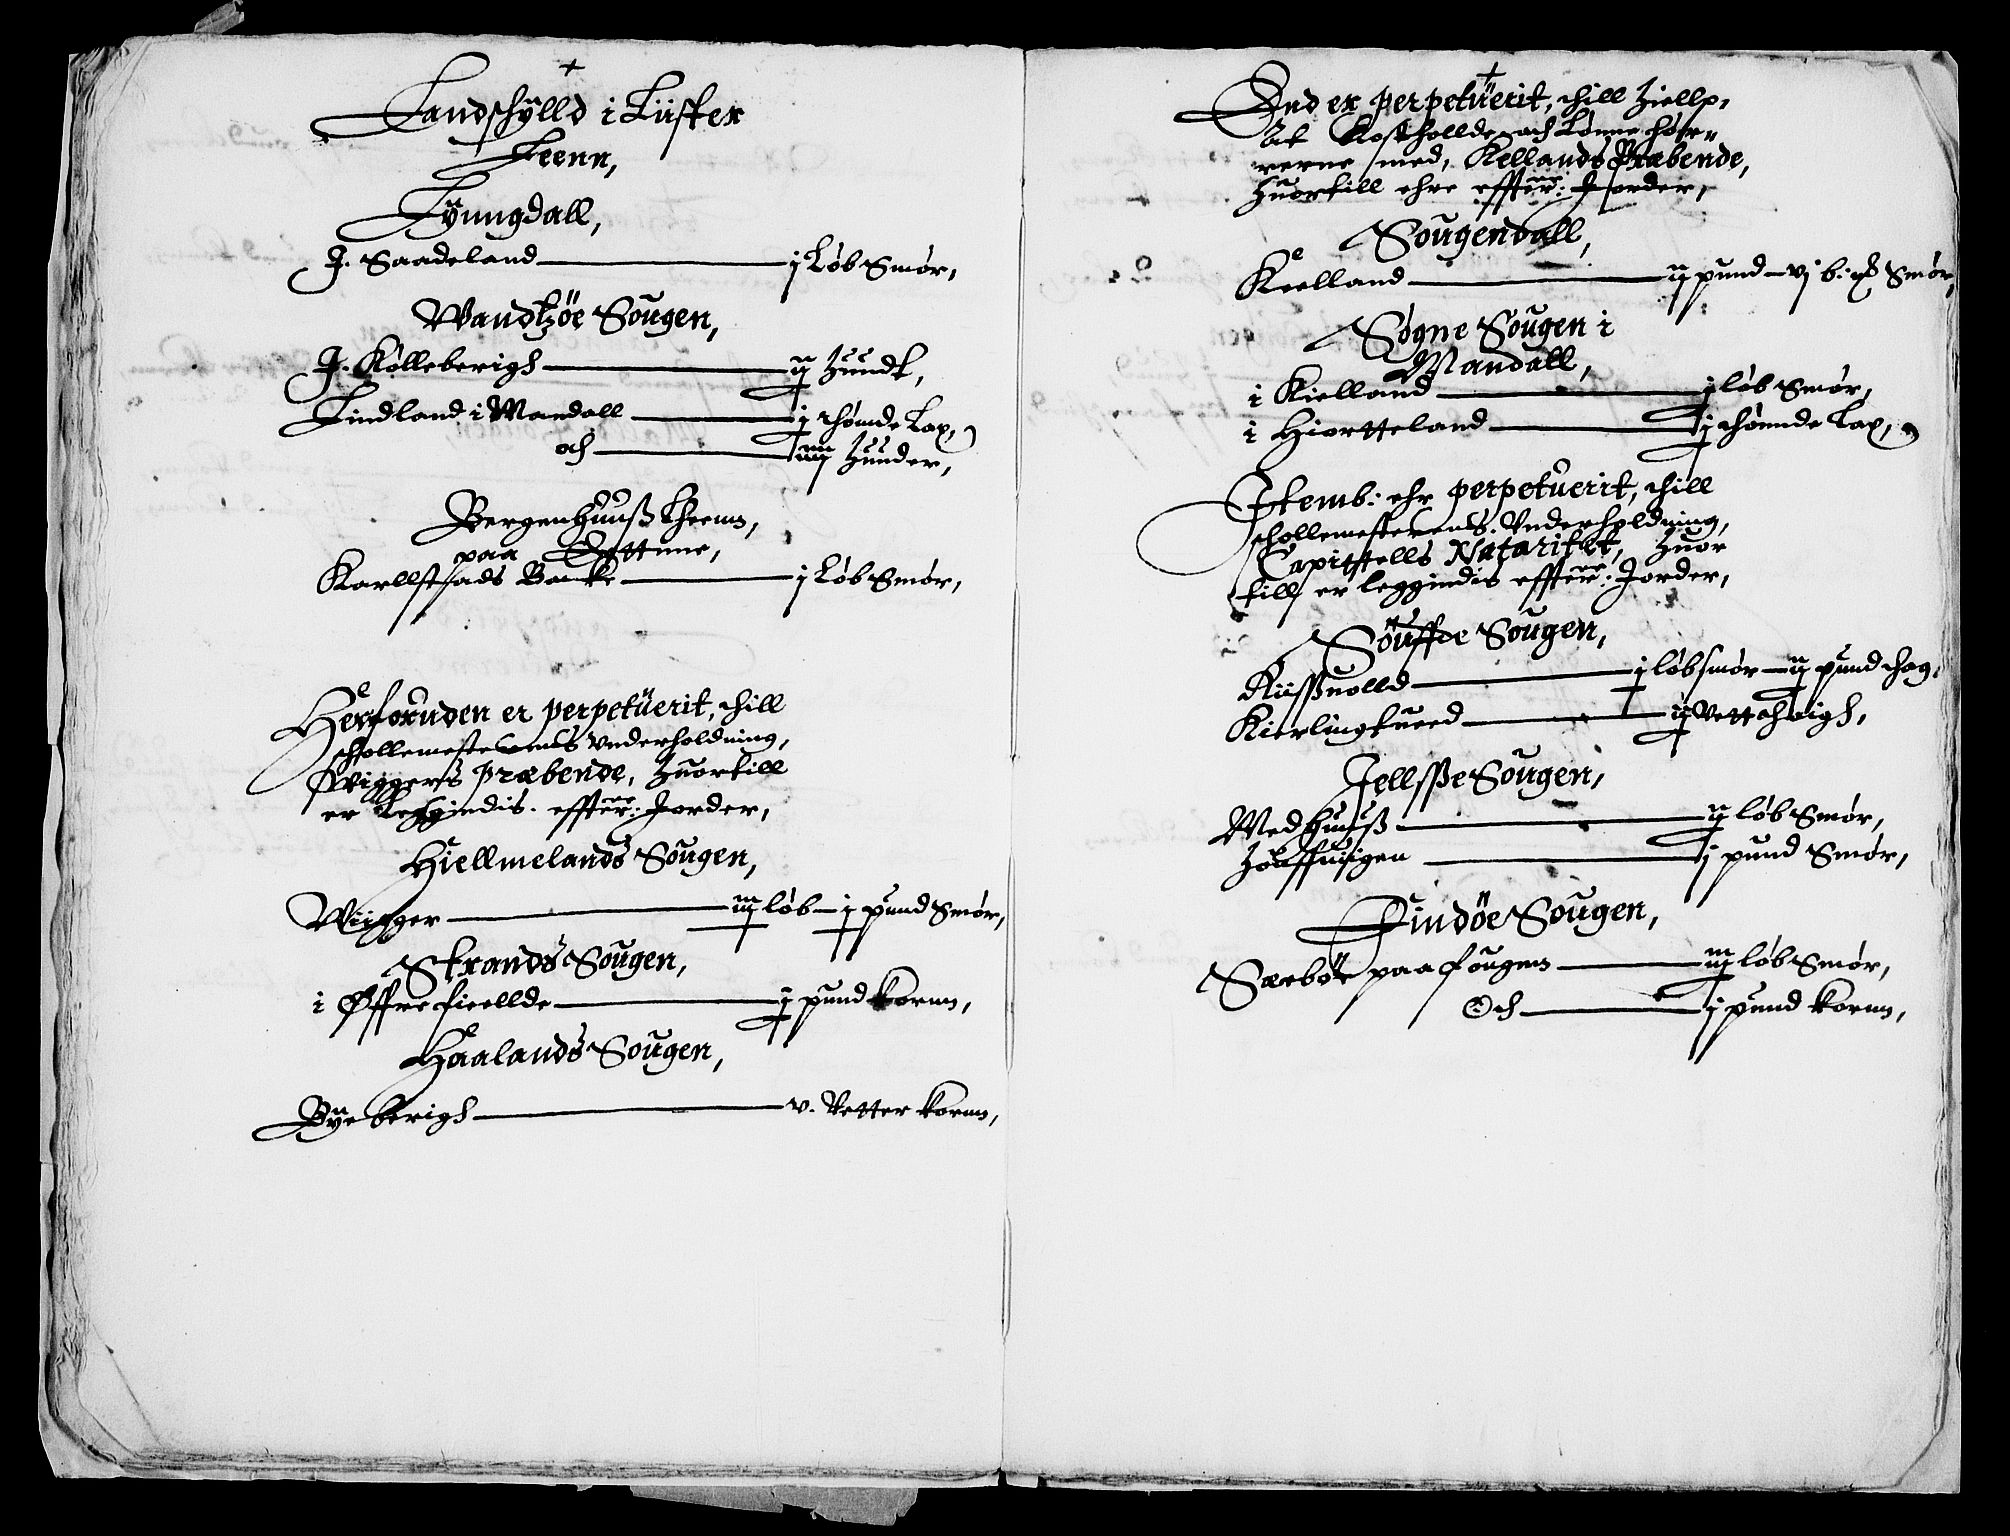 Landschylld i Liister
Leenn,
Lÿnngdall,
J. Saadeland — j Løb Smør,
Wandtzöe Sougen,
J. Kolleberigh — ij Huudt,
Lindland i Mandall — j thömde Lax,
och — iiij Huuder,
Bergenhuuß Lheenn,
paa
Karllstads Bancke — j Løb Smør,
Herforuden er perpetüerit, thill
schollemesterens Vnderholdning,
Wiggers præbende, Huortill
er Leggindis. effterr: Jorder,
Hiellmelands Sougen,
Wiigger — iij løb — j pund Smør,
Strands Sougen,
i Øffrefieellde — ij pund kornn,
Haalands Sougen,
Bÿeberigh — v. Vetter kornn,
End er perpetüerit, thill Hiellp,
At Kosthollde och Lønne hør-
rerne med, Kellands Præbende,
Huortill ehre effterr: Jorder,
Sougendall,
Keelland — ij pund — vj b: Smør,
Sogne Sougen i
Mandall,
i Kielland — ij løb Smør,
i Hiortteland — ij thønnde Lax,
Itemb: ehr perpetuerit, thill
schollemesterens. Vnderholdning,
Capittells Notaritet, Huor
till er leggindis effterr: Jorder,
Söuffde Sougen,
Kiißuolld — j løb smør — ij pund
Kierlingtueed — iij Vett
Jellsße Sougen,
Medhuuß — ij løb Smør,
— j pund Smør,
Findöe Sougen,
Sæeböe paa fougenn — iij løb Smør,
Och — j pund kornn,